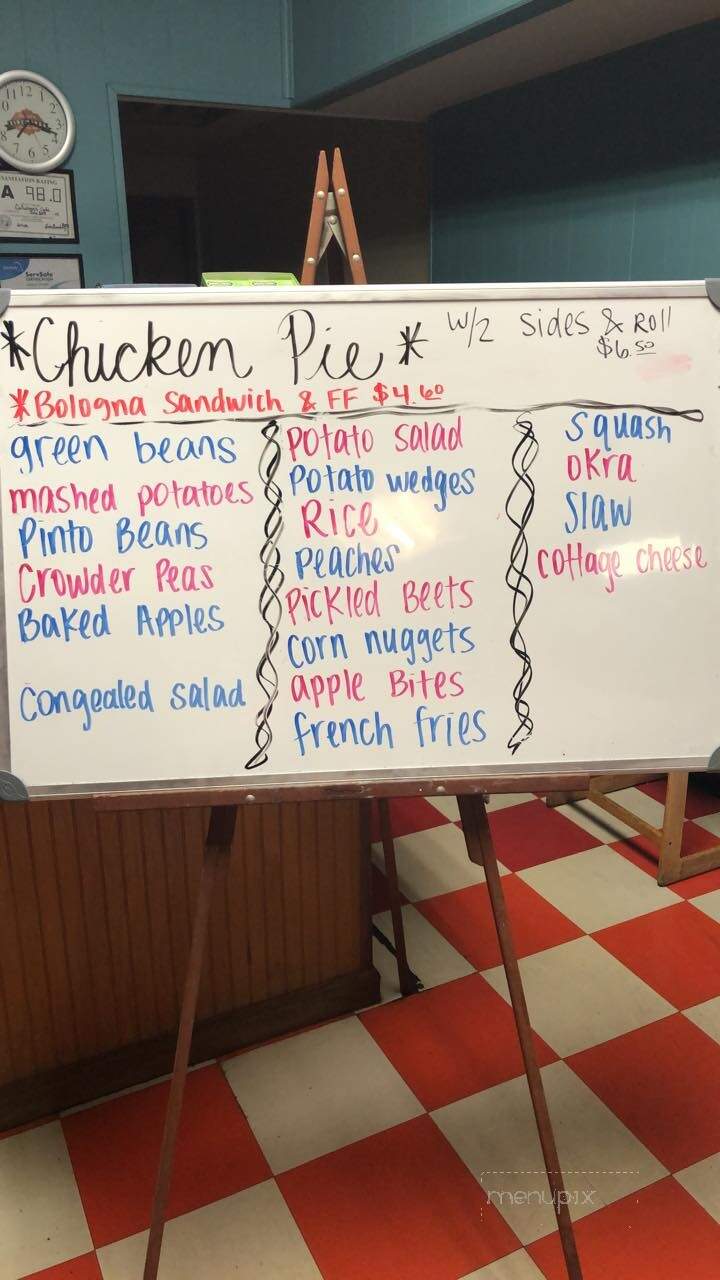 SANITATION RATING
A 98.0
ServSafe
*Chicken Pie* w/2 sides & Roll
$6.50
*Bologna Sandwich & FF $4.60
green beans
mashed potatoes
Pinto Beans
Crowder Peas
Baked Apples
Congealed salad
Potato Salad
Potato wedges
Rice
Peaches
Pickled Beets
corn nuggets
apple Bites
french fries
Squash
Okra
Slaw
Cottage cheese
menupix